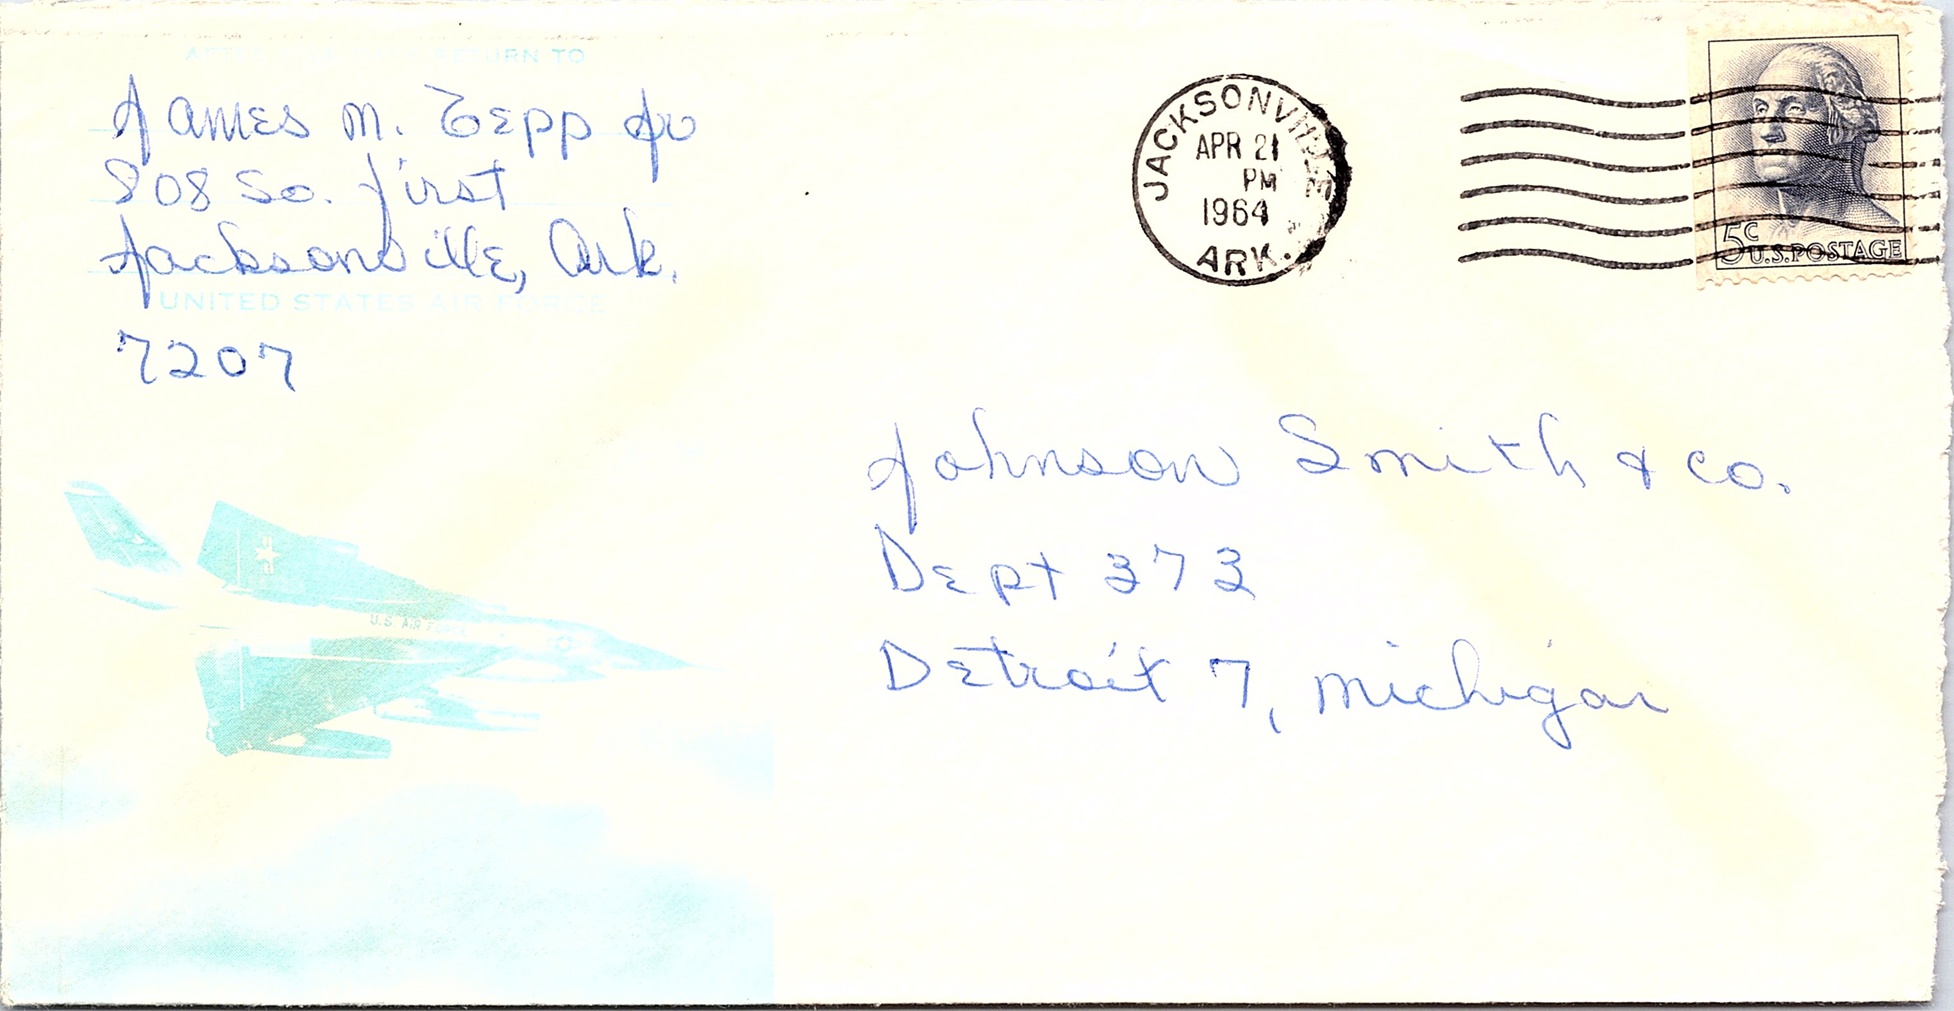 AFTER 5 DAYS RETURN TO
James M. Zepp Jr
808 So. first
Jacksonville, Ark.
UNITED STATES AIR FORCE
7207
JACKSONVILLE
APR 21
PM
1964
ARK.
5c
U.S. POSTAGE
Johnson Smith & co.
Dept 373
Detroit 7, Michigan
U.S. AIR FORCE